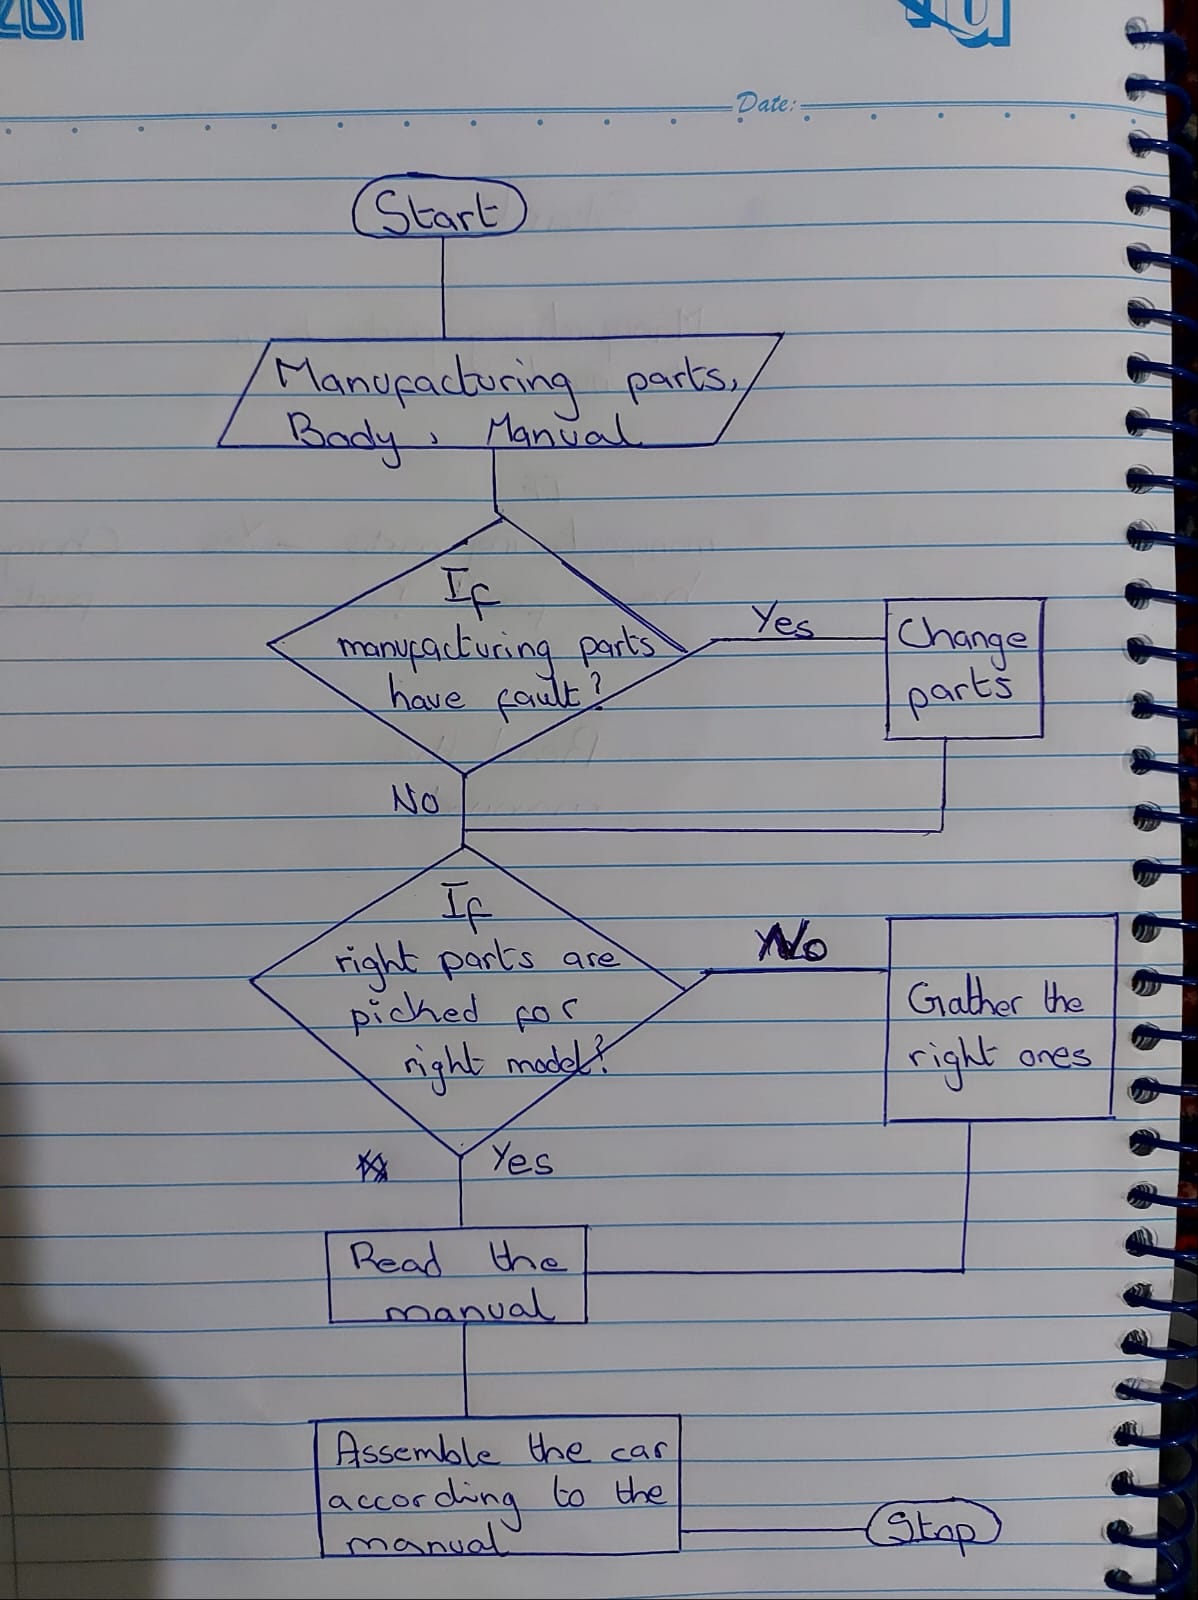 Date:
Start
Manufacturing parts,
Body, Manual
If
manufacturing parts
have fault?
Yes
Change
parts
No
If
right parts are
picked for
right model?
No
Gather the
right ones
Yes
Read the
manual
Assemble the car
according to the
manual
Stop